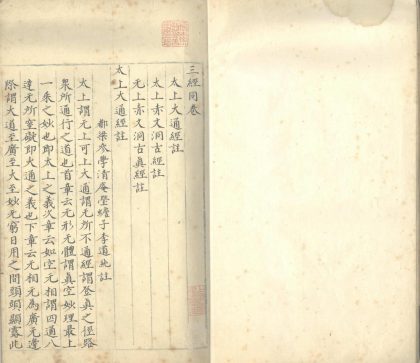 三經同卷
太上大通經註
太上赤文洞古真經註
无上赤文洞古真經註
太上大通經註
都梁參學清庵瑩蟾子李道純註
太上謂无上可上大通謂无所不通經謂登真之徑路
衆所通行之道也首章云无形元體謂真空妙理最上
一乘之妙也即太上之義次章云如空无相謂四通八
達无所窒礙即大通之義也下章云无相无爲廣无邊
際謂大道至廣至大至妙无窮日用之間頭頭顯露此